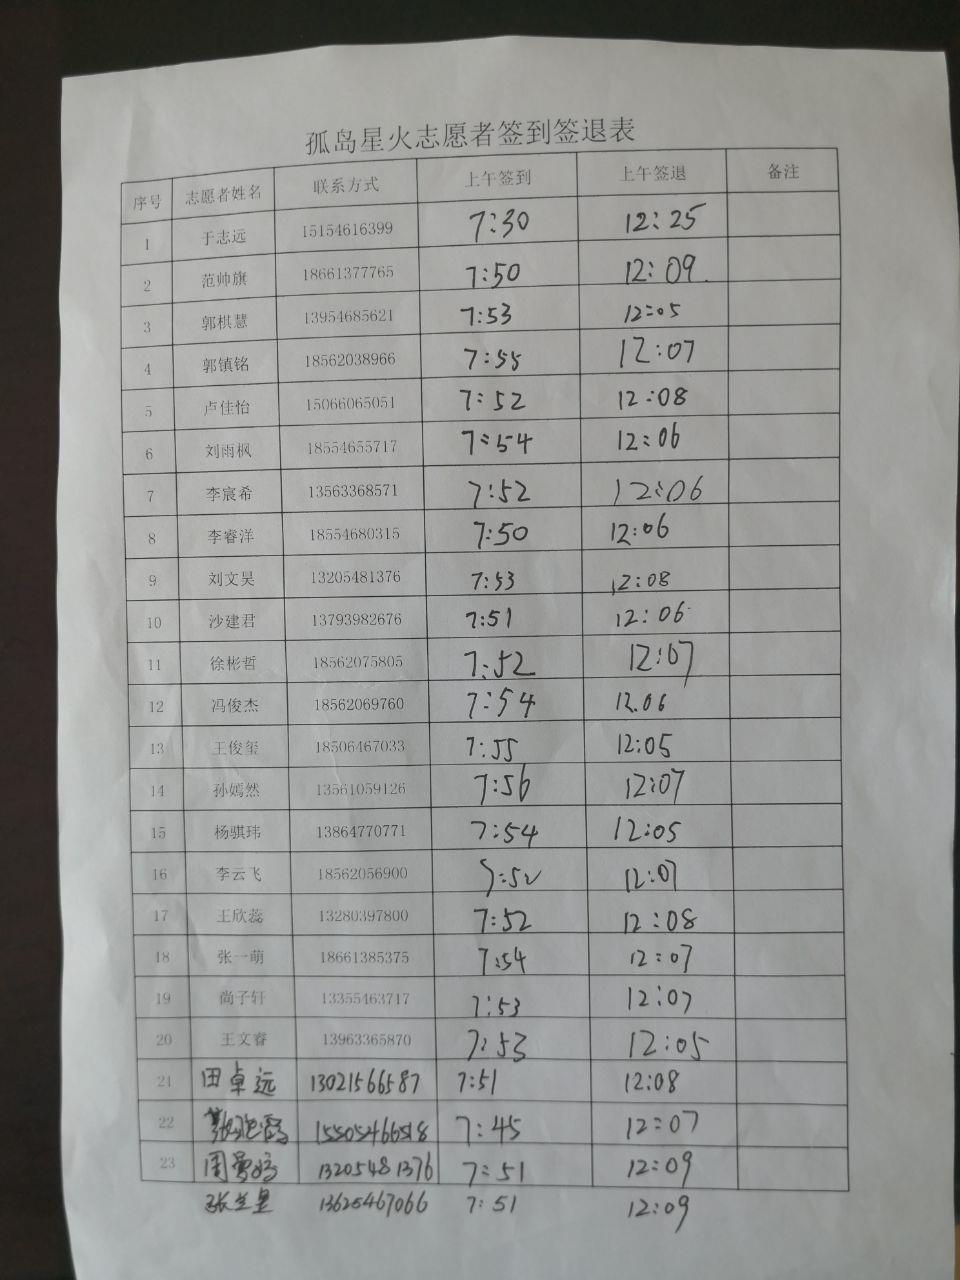 孤岛星火志愿者签到签退表
序号 志愿者姓名 联系方式 上午签到 上午签退 备注
1 于志远 15154616399 7:30 12:25
2 范帅旗 18661377765 7:50 12:09
3 郭棋慧 13954685621 7:53 12:05
4 郭镇铭 18562038966 7:55 12:07
5 卢佳怡 15066065051 7:52 12:08
6 刘雨枫 18554655717 7:54 12:06
7 李宸希 13563368571 7:52 12:06
8 李睿洋 18554680315 7:50 12:06
9 刘文昊 13205481376 7:53 12:08
10 沙建君 13793982676 7:51 12:06
11 徐彬哲 18562075805 7:52 12:07
12 冯俊杰 18562069760 7:54 12.06
13 王俊玺 18506467033 7:55 12:05
14 孙嫣然 13561059126 7:56 12:07
15 杨骐玮 13864770771 7:54 12:05
16 李云飞 18562056900 7:52 12:07
17 王欣蕊 13280397800 7:52 12:08
18 张一萌 18661385375 7:54 12:07
19 尚子轩 13355463717 7:53 12:07
20 王文睿 13963365870 7:53 12:05
21 田卓远 13021566587 7:51 12:08
22 15505466518 7:45 12:07
23 周 13205481376 7:51 12:09
张兰星 13625467066 7:51 12:09